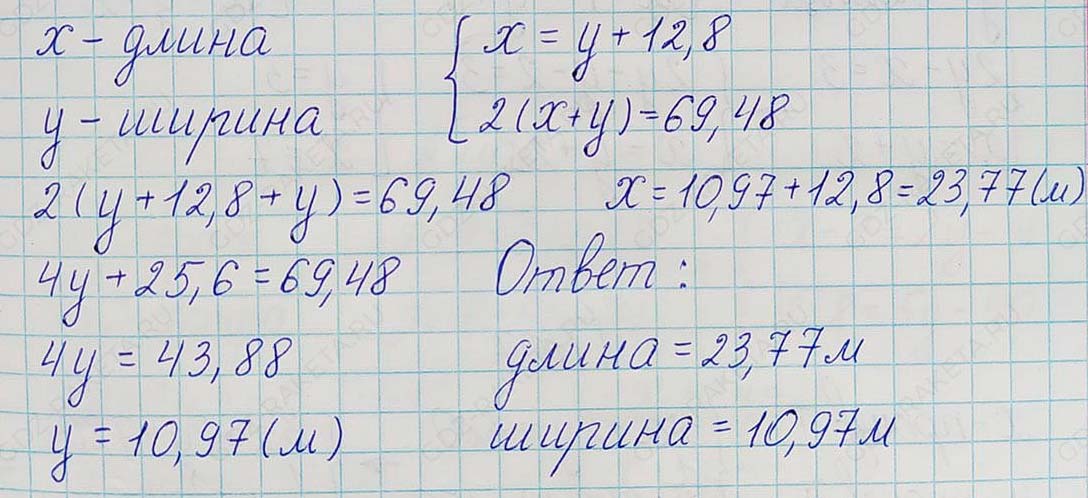 x - длина
y - ширина
x = y + 12,8
2(x+y) = 69,48
2(y + 12,8 + y) = 69,48
4y + 25,6 = 69,48
4y = 43,88
y = 10,97(м)
x = 10,97 + 12,8 = 23,77(м)
Ответ:
длина = 23,77м
ширина = 10,97м